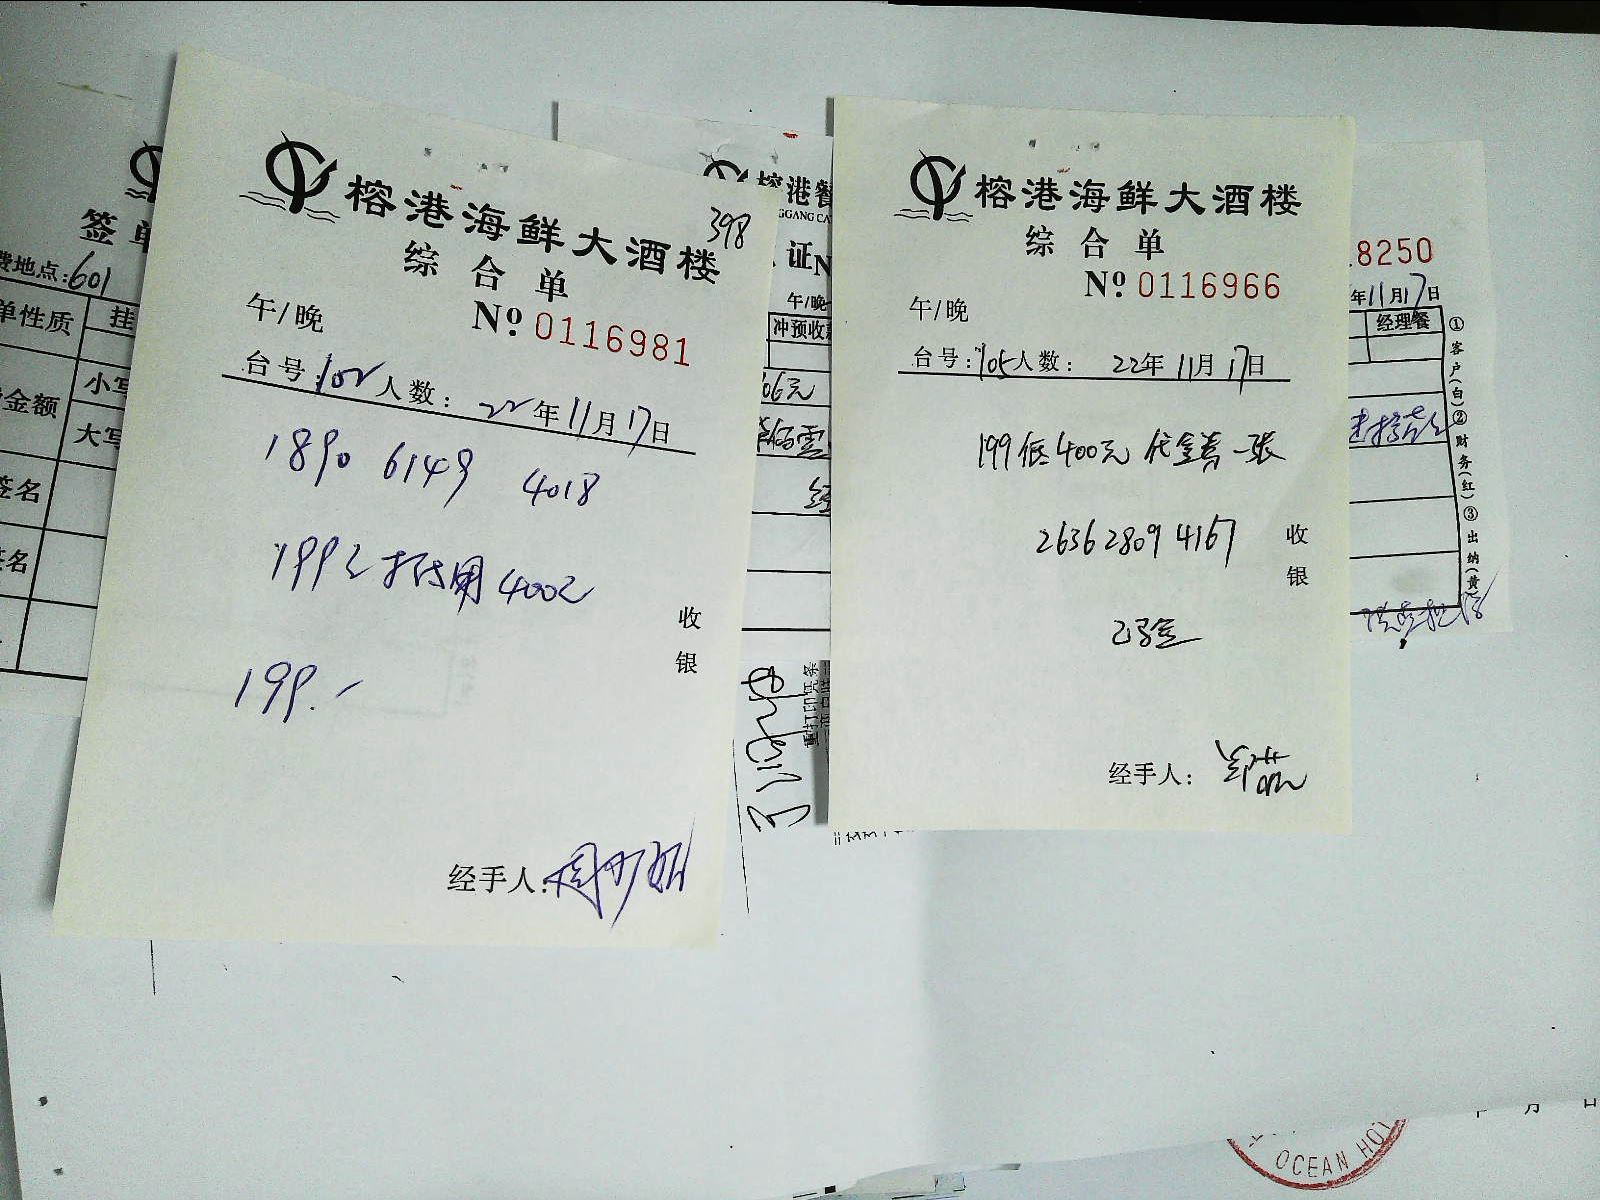 榕港海鲜大酒楼
398
综合单
午/晚
Nº 0116981
台号:102 人数: 22年11月17日
1890 6149 4018
199元抵用400元
199.-
收
银
经手人:
榕港海鲜大酒楼
综合单
Nº 0116966
午/晚
台号:105 人数: 22年11月17日
199低400元代金券一张
2636 2809 4167
收
银
已验
经手人:
签单
费地点:601
单性质 挂
金额 小写
大写
签名
签名
榕港餐
GGANG CA
证N
午/晚
冲预收
06元
重打印凭条
8250
年11月17日
经理餐
①客户(白)②财务(红)③出纳(黄)
月 日
OCEAN HOT